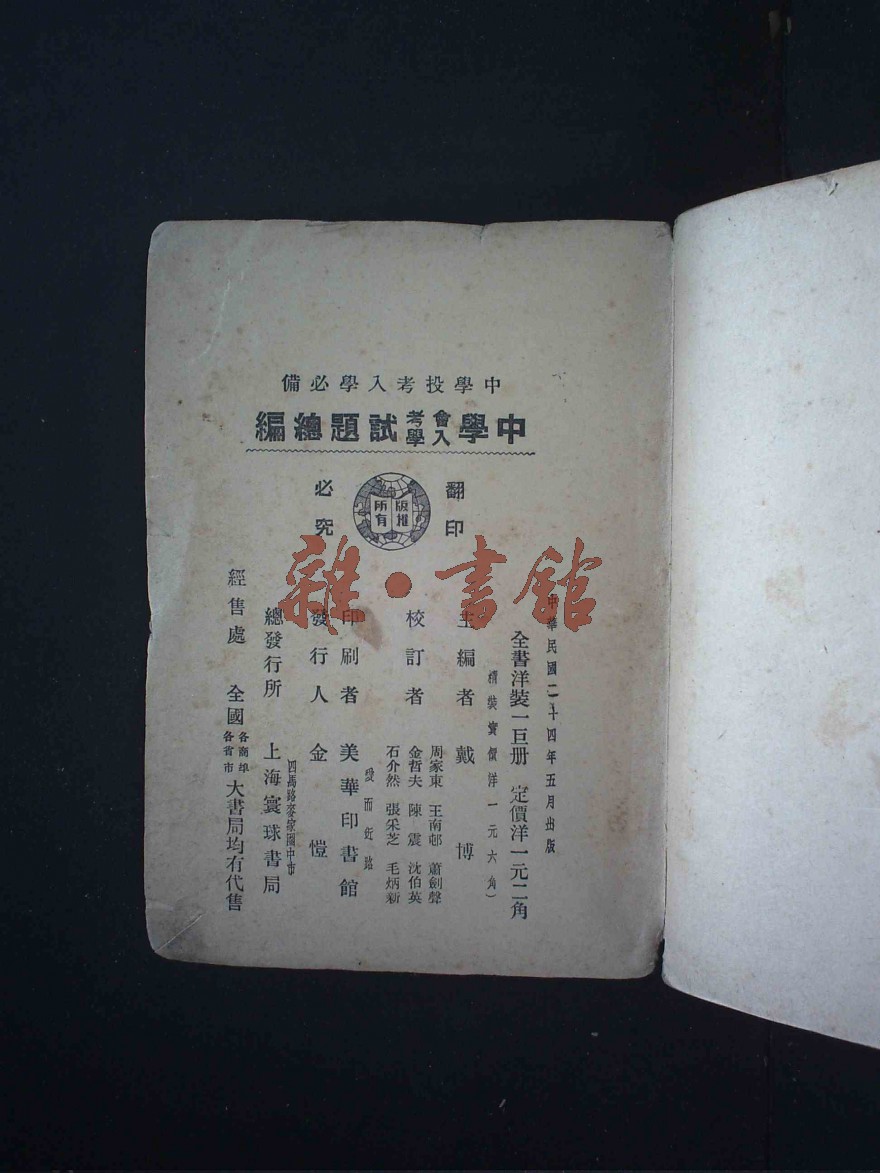 中學投考入學必備
中學會考入學試題總編
翻印
必究
版權
所有
雜·書館
中華民國二十四年五月出版
全書洋裝一巨册 定價洋一元二角
精裝實價洋一元六角)
主編者 戴博
校訂者
周家東 王南邨 蕭劍聲
金哲夫 陳震 沈伯英
石介然 張采芝 毛炳新
愛而近路
印刷者 美華印書館
發行人 金愷
四馬路麥家圈中市
總發行所 上海寰球書局
經售處 全國各商埠各省市大書局均有代售